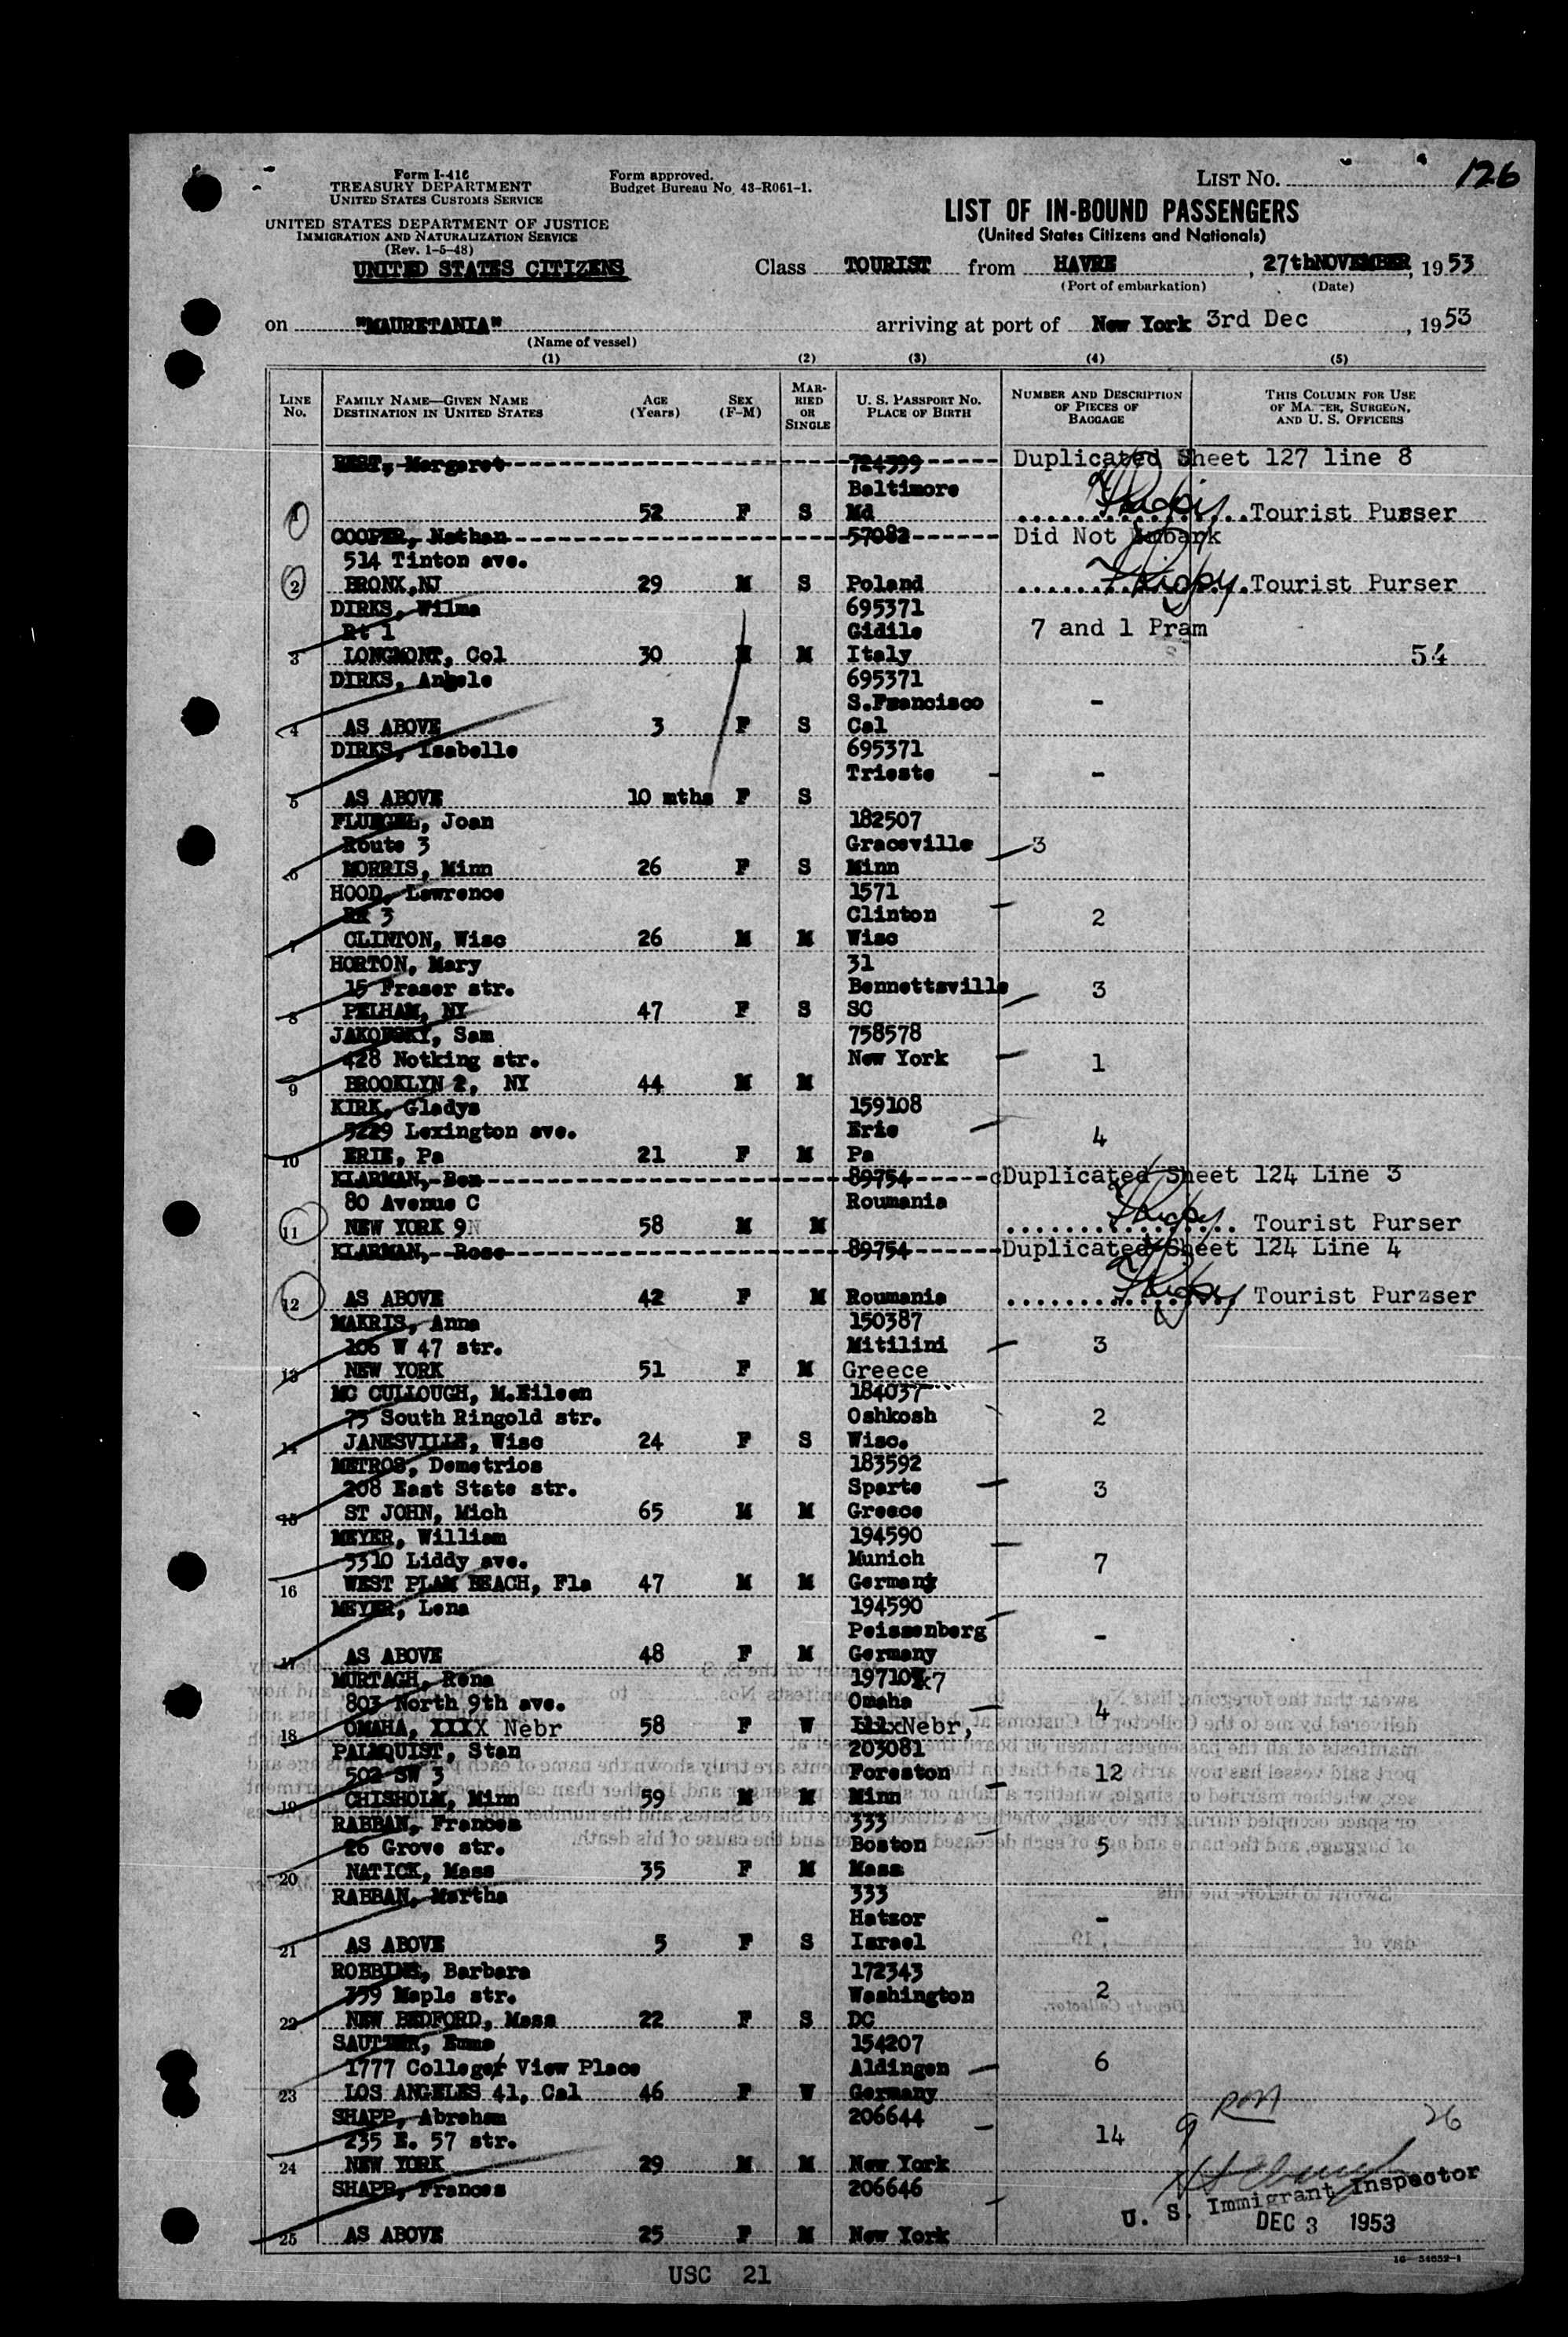 Form I-416
TREASURY DEPARTMENT
UNITED STATES CUSTOMS SERVICE
Form approved.
Budget Bureau No. 43-R061-1.
LIST NO. 126
UNITED STATES DEPARTMENT OF JUSTICE
IMMIGRATION AND NATURALIZATION SERVICE
(Rev. 1-5-48)
UNITED STATES CITIZENS
LIST OF IN-BOUND PASSENGERS
(United States Citizens and Nationals)
Class TOURIST from HAVRE, 27thNOVEMBER, 1953
(Port of embarkation) (Date)
on "MAURETANIA" arriving at port of New York 3rd Dec, 1953
(Name of vessel)
(1) (2) (3) (4) (5)
LINE No.
FAMILY NAME—GIVEN NAME
DESTINATION IN UNITED STATES
AGE (Years)
SEX (F-M)
MARRIED OR SINGLE
U. S. PASSPORT NO.
PLACE OF BIRTH
NUMBER AND DESCRIPTION OF PIECES OF BAGGAGE
THIS COLUMN FOR USE OF MASTER, SURGEON, AND U. S. OFFICERS
BEST, Margaret 724399 Duplicated Sheet 127 line 8
Baltimore
1 52 F S Md Tourist Purser
COOPER, Nathan 57082 Did Not Embark
514 Tinton ave.
2 BRONX,NJ 29 M S Poland Tourist Purser
DIRKS, Wilma 695371
Rt 1 Gidile 7 and 1 Pram
3 LONGMONT, Col 30 M Italy 54
DIRKS, Angele 695371
S.Francisco -
4 AS ABOVE 3 F S Cal
DIRKS, Isabelle 695371
Trieste -
5 AS ABOVE 10 mths F S
FLUEGEL, Joan 182507
Route 3 Graceville 3
6 MORRIS, Minn 26 F S Minn
HOOD, Lawrence 1571
Rt 3 Clinton 2
7 CLINTON, Wisc 26 M M Wisc
HORTON, Mary 31
15 Fraser str. Bennettsville 3
8 PELHAM, NY 47 F S SC
JAKOBSKY, Sam 758578
428 Notking str. New York 1
9 BROOKLYN 2, NY 44 M M
KIRK, Gladys 159108
3229 Lexington ave. Erie 4
10 ERIE, Pa 21 F M Pa
KLARMAN, Ben 89754 Duplicated Sheet 124 Line 3
80 Avenue C Roumania
11 NEW YORK 9N 58 M M Tourist Purser
KLARMAN, Rose 89754 Duplicated Sheet 124 Line 4
12 AS ABOVE 42 F M Roumania Tourist Purzser
MAKRIS, Anna 150387
206 W 47 str. Mitilini 3
13 NEW YORK 51 F M Greece
MC CULLOUGH, M.Eileen 184037
75 South Ringold str. Oshkosh 2
14 JANESVILLE, Wisc 24 F S Wisc.
METROS, Demetrios 183592
208 East State str. Sparte 3
15 ST JOHN, Mich 65 M M Greece
MEYER, William 194590
3310 Liddy ave. Munich 7
16 WEST PLAM BEACH, Fla 47 M M Germany
MEYER, Lena 194590
Peissenberg -
17 AS ABOVE 48 F M Germany
MURTAGH, Rena 19710x7
803 North 9th ave. Omaha 4
18 OMAHA, XXXX Nebr 58 F W IllxNebr,
PALMQUIST, Stan 203081
502 SW 3 Foreston 12
19 CHISHOLM, Minn 59 M M Minn
RABBAN, Frances 333
26 Grove str. Boston 5
20 NATICK, Mass 35 F M Mass
RABBAN, Martha 333
Hatzor -
21 AS ABOVE 5 F S Israel
ROBBINS, Barbara 172343
359 Maple str. Washington 2
22 NEW BEDFORD, Mass 22 F S DC
SAUTTER, Emma 154207
1777 College View Place Aldingen 6
23 LOS ANGELES 41, Cal 46 F W Germany
SHAPP, Abraham 206644
235 E. 57 str. 14 9 26
24 NEW YORK 29 M M New York
SHAPP, Frances 206646
25 AS ABOVE 25 F M New York
U. S. Immigrant Inspector
DEC 3 1953
16—54652-1
USC 21